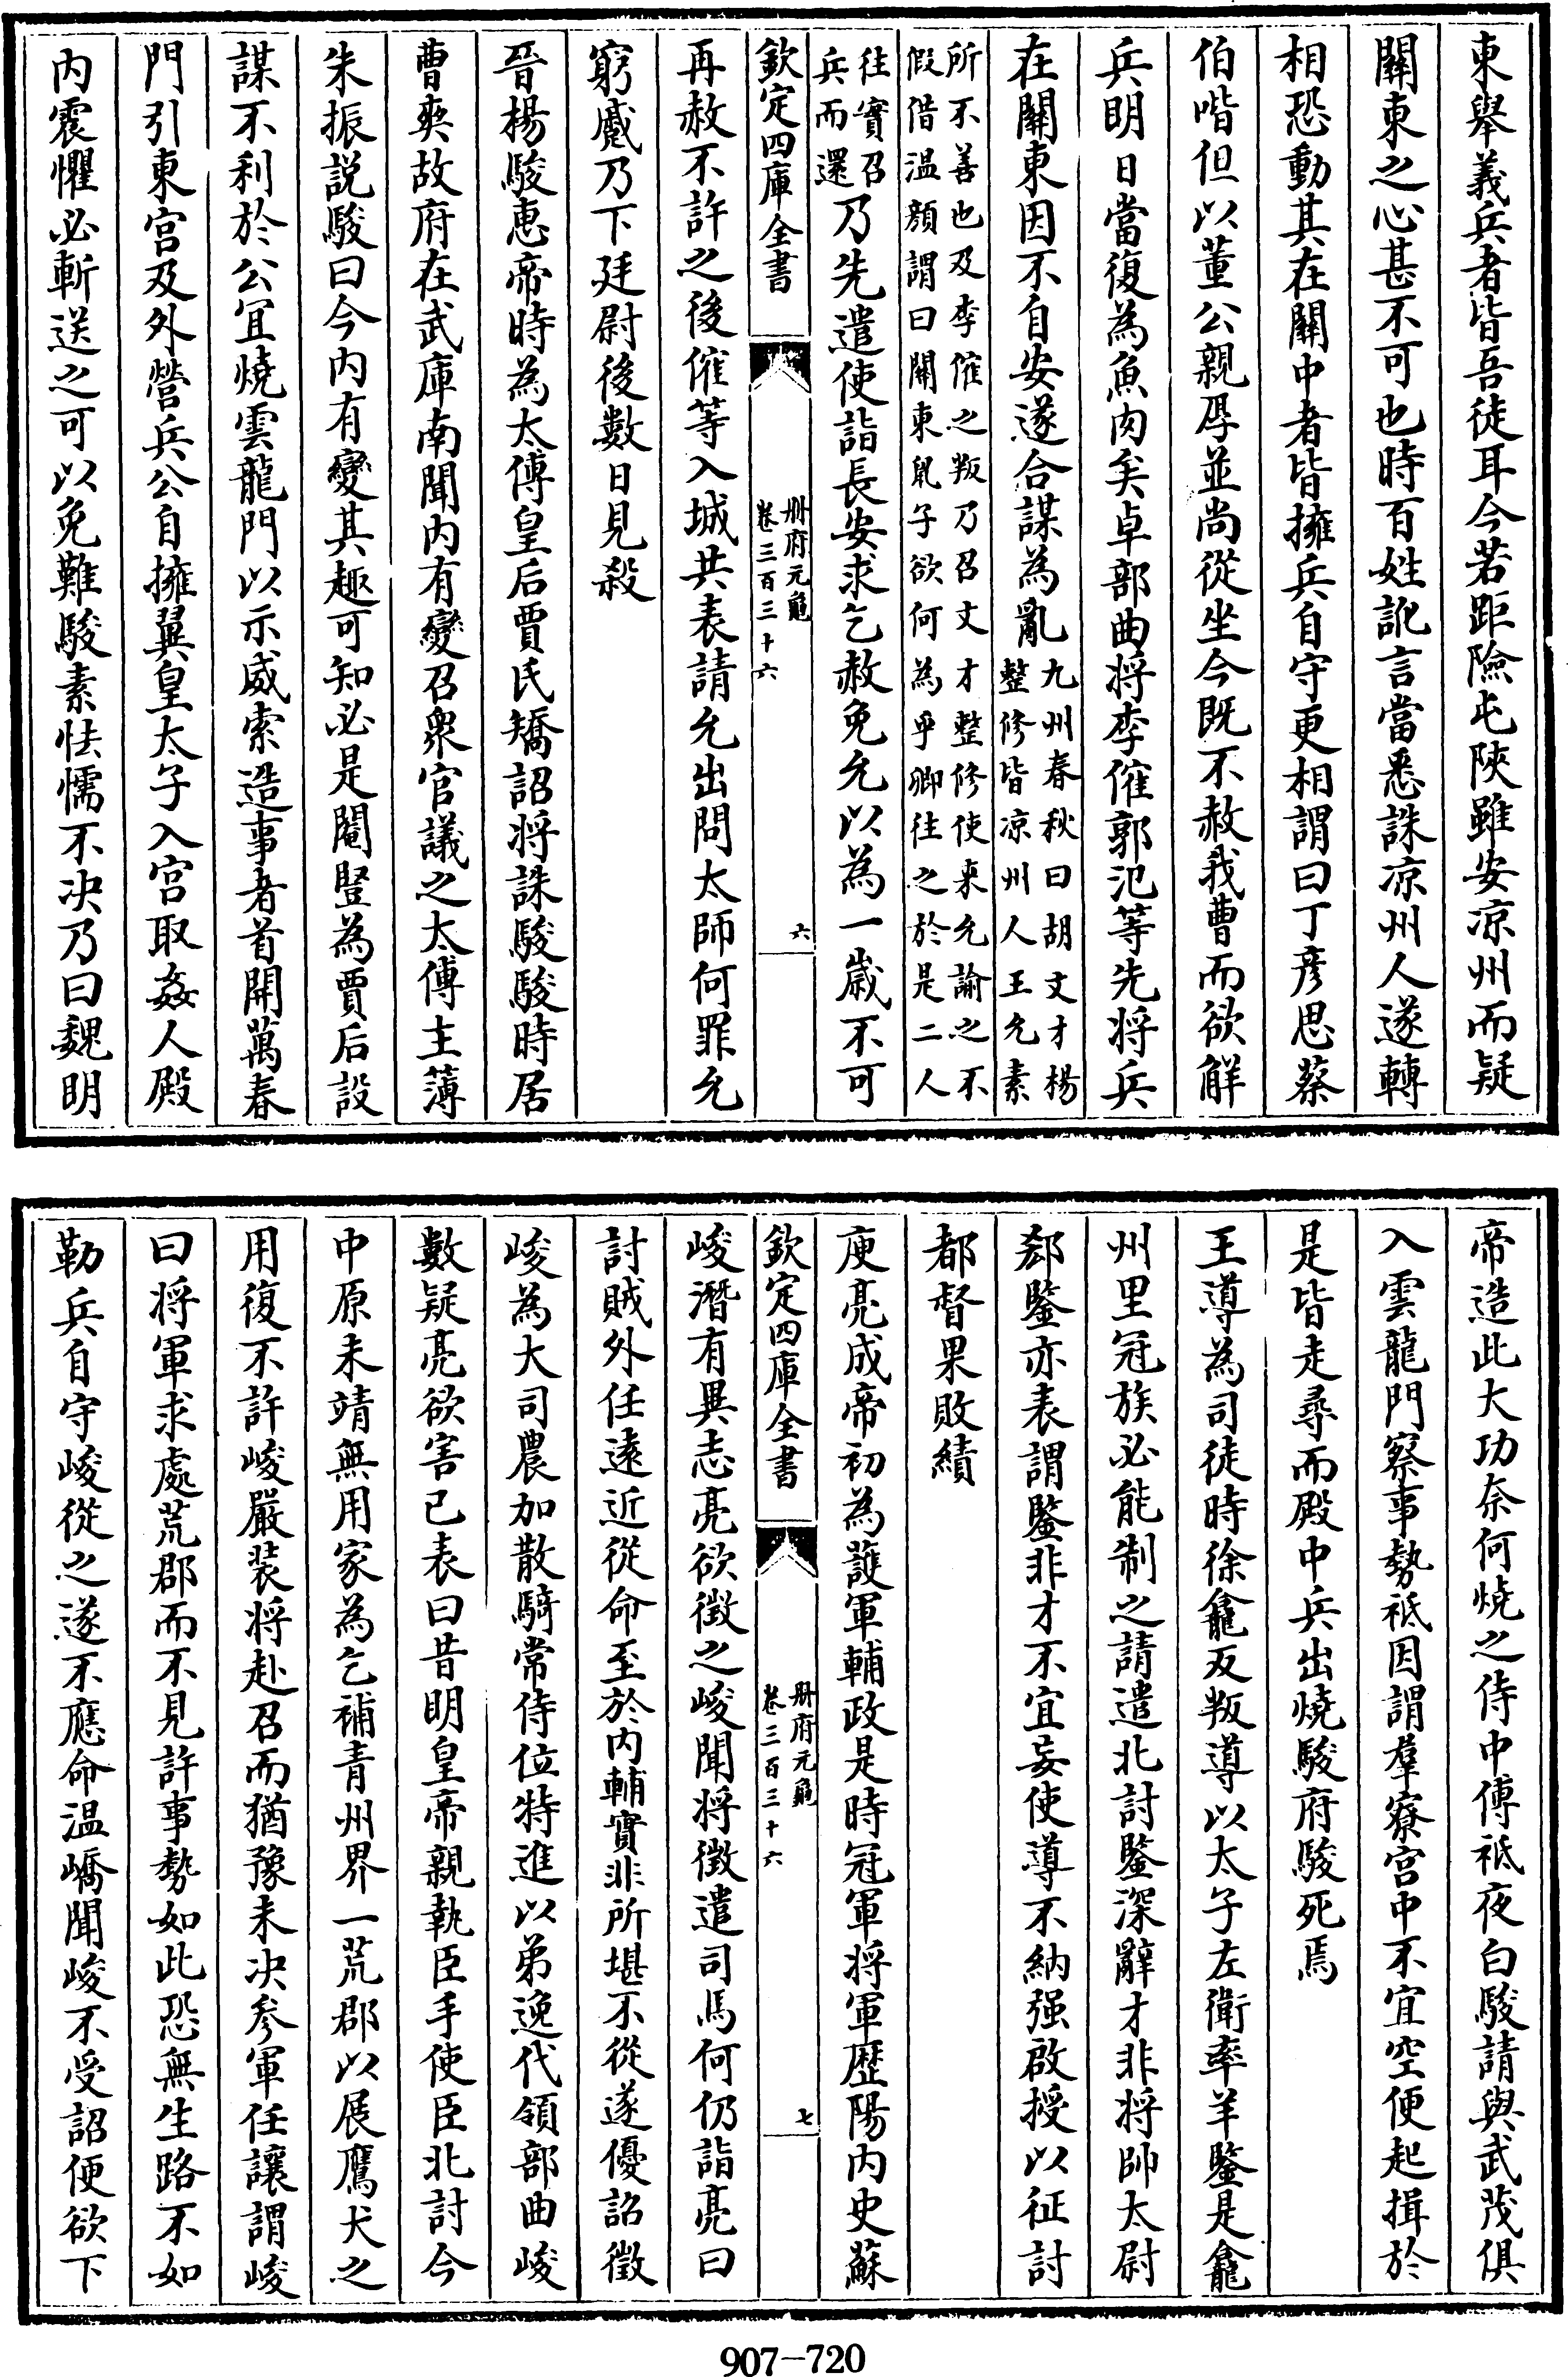 東舉義兵者皆吾徒耳今若距險屯陜雖安凉州而疑
關東之心甚不可也時百姓訛言當悉誅凉州人遂轉
相恐動其在關中者皆擁兵自守更相謂曰丁彦思蔡
伯喈但以董公親厚並尚從坐今既不赦我曹而欲解
兵明日當復為魚肉矣卓部曲将李傕郭氾等先将兵
在關東因不自安遂合謀為亂九州春秋曰胡文才楊
整修皆凉州人王允素
所不善也及李傕之叛乃召文才整修使東允諭之不
假借温顔謂曰關東鼠子欲何為乎卿往之於是二人
往實召
兵而還乃先遣使詣長安求乞赦免允以為一歲不可
欽定四庫全書
冊府元龜
卷三百三十六
六
再赦不許之後傕等入城共表請允出問太師何罪允
窮蹙乃下廷尉後數日見殺
晉楊駿惠帝時為太傅皇后賈氏矯詔将誅駿駿時居
曹爽故府在武庫南聞内有變召衆官議之太傅主薄
朱振説駿曰今内有變其趣可知必是閹竪為賈后設
謀不利於公宜燒雲龍門以示威索造事者首開萬春
門引東宫及外營兵公自擁翼皇太子入宫取姦人殿
内震懼必斬送之可以免難駿素怯懦不决乃曰魏明
帝造此大功奈何燒之侍中傅祗夜白駿請與武茂俱
入雲龍門察事勢祗因謂羣寮宫中不宜空便起揖於
是皆走尋而殿中兵出燒駿府駿死焉
王導為司徒時徐龕反叛導以太子左衛率羊鑒是龕
州里冠族必能制之請遣北討鑒深辭才非将帥太尉
郄鑒亦表謂鑒非才不宜妄使導不納强啟授以征討
都督果敗績
庾亮成帝初為護軍輔政是時冠軍将軍歷陽内史蘇
欽定四庫全書
冊府元龜
卷三百三十六
七
峻潛有異志亮欲徴之峻聞将徴遣司馬何仍詣亮曰
討賊外任遠近從命至於内輔實非所堪不從遂優詔徵
峻為大司農加散騎常侍位特進以弟逸代領部曲峻
數疑亮欲害已表曰昔明皇帝親執臣手使臣北討今
中原未靖無用家為乞補青州界一荒郡以展鷹犬之
用復不許峻嚴装将赴召而猶豫未决参軍任讓謂峻
曰将軍求處荒郡而不見許事勢如此恐無生路不如
勒兵自守峻從之遂不應命温嶠聞峻不受詔便欲下
907-720